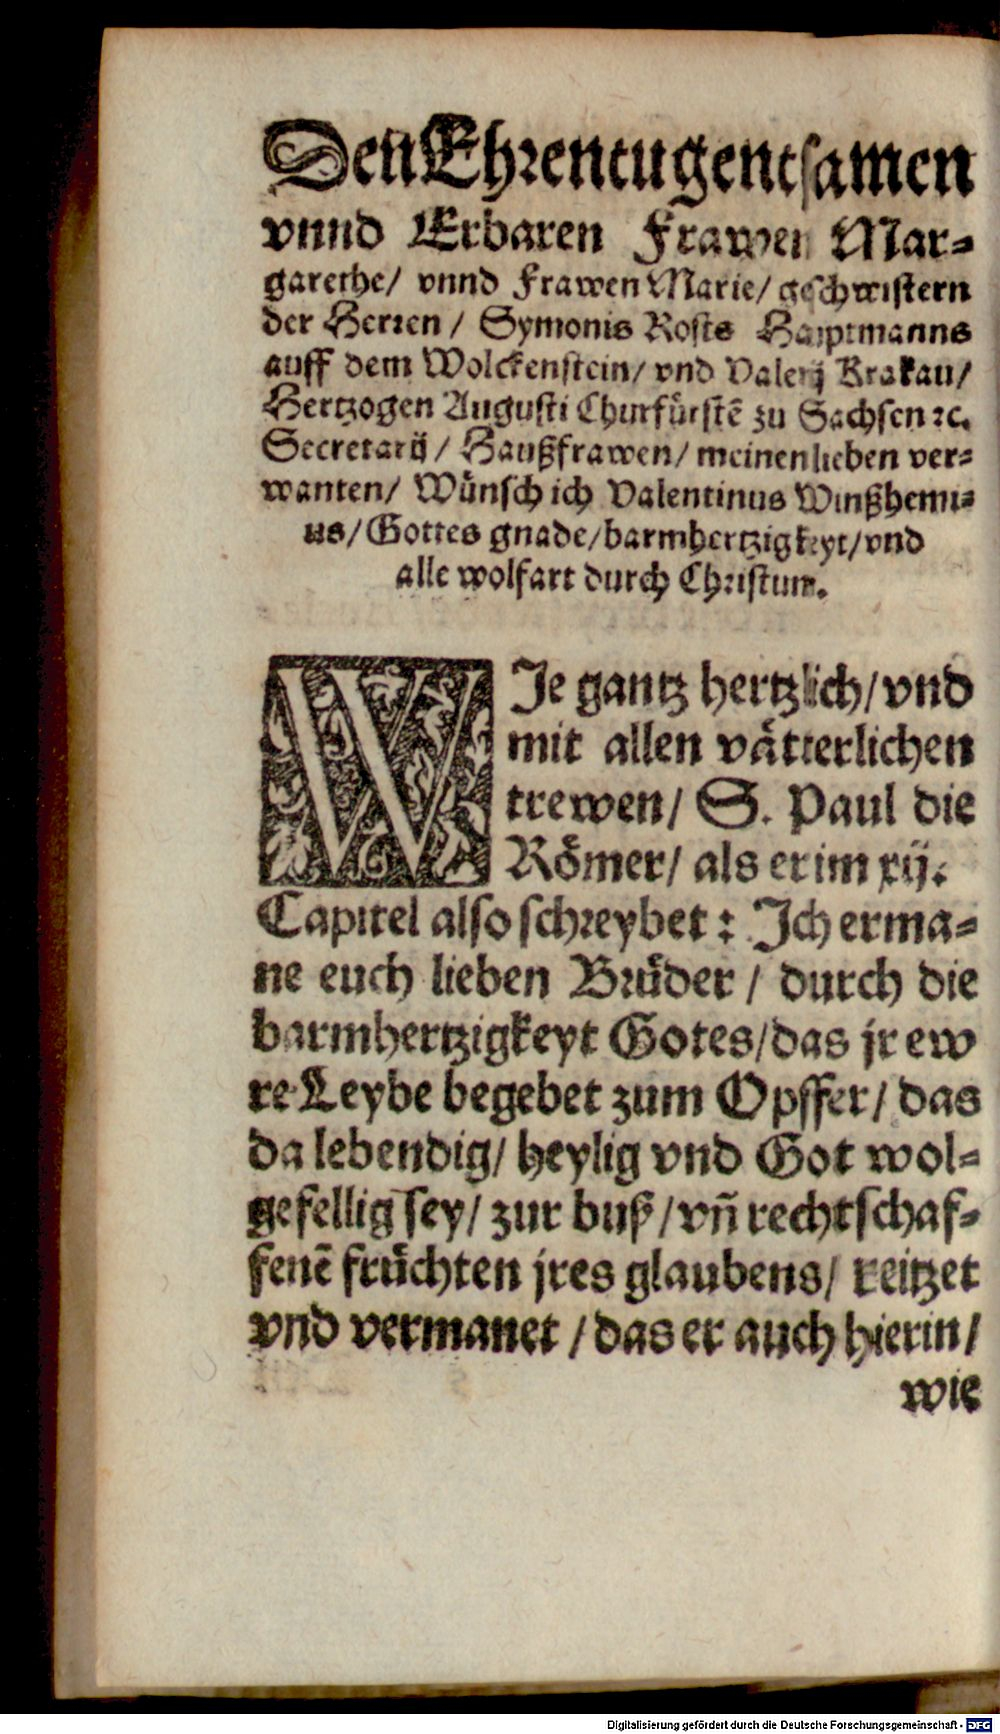 Den Ehrentugentsamen
vnnd Erbaren Frawen Mar-
garethe/ vnnd Frawen Marie/ geschwistern
der Herren / Symonis Rosts Hauptmanns
auff dem Wolckenstein/ vnd Valerij Krakau/
Hertzogen Augusti Churfürstē zu Sachsen ꝛc.
Secretarij / Haußfrawen/ meinen lieben ver-
wanten/ Wünsch ich Valentinus Winßhemi-
us/ Gottes gnade/ barmhertzigkeyt/ vnd
alle wolfart durch Christum.
WIe gantz hertzlich/ vnd
mit allen vätterlichen
trewen/ S. Paul die
Römer/ als er im xij.
Capitel also schreybet : Ich erma-
ne euch lieben Brüder / durch die
barmhertzigkeyt Gotes/ das jr ew
re Leybe begebet zum Opffer/ das
da lebendig/ heylig vnd Got wol-
gefellig sey/ zur buß / vñ rechtschaf-
fenē früchten jres glaubens/ reitzet
vnd vermanet / das er auch hierin/
wie
Digitalisierung gefördert durch die Deutsche Forschungsgemeinschaft - DFG